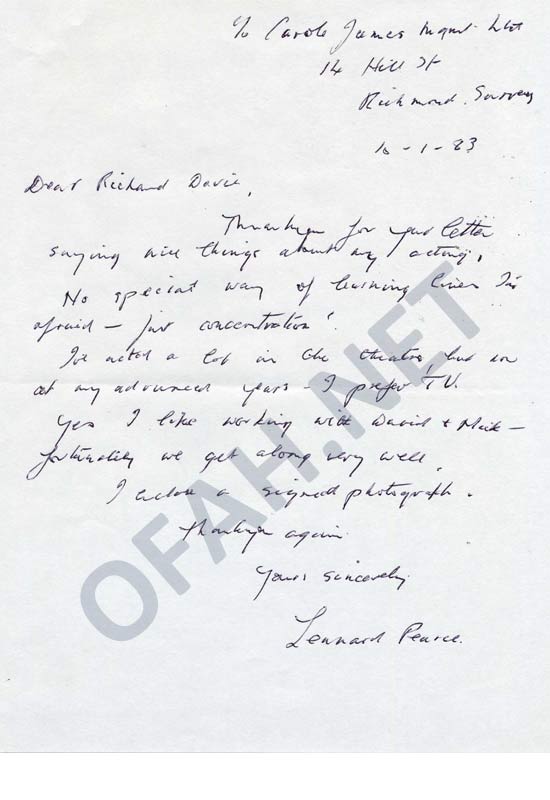 c/o Carole James Mgmt. Ltd
14 Hill St
Richmond. Surrey
10 - 1 - 83
Dear Richard Davie,
Thankyou for your letter
saying nice things about my acting.
No special way of learning lines I'm
afraid – just concentration!
I've acted a lot in the theatre, but now
at my advanced years – I prefer T.V.
Yes I like working with David & Nick –
fortunately we get along very well.
I enclose a signed photograph.
Thankyou again
Yours sincerely
Lennard Pearce.
OFAH.NET